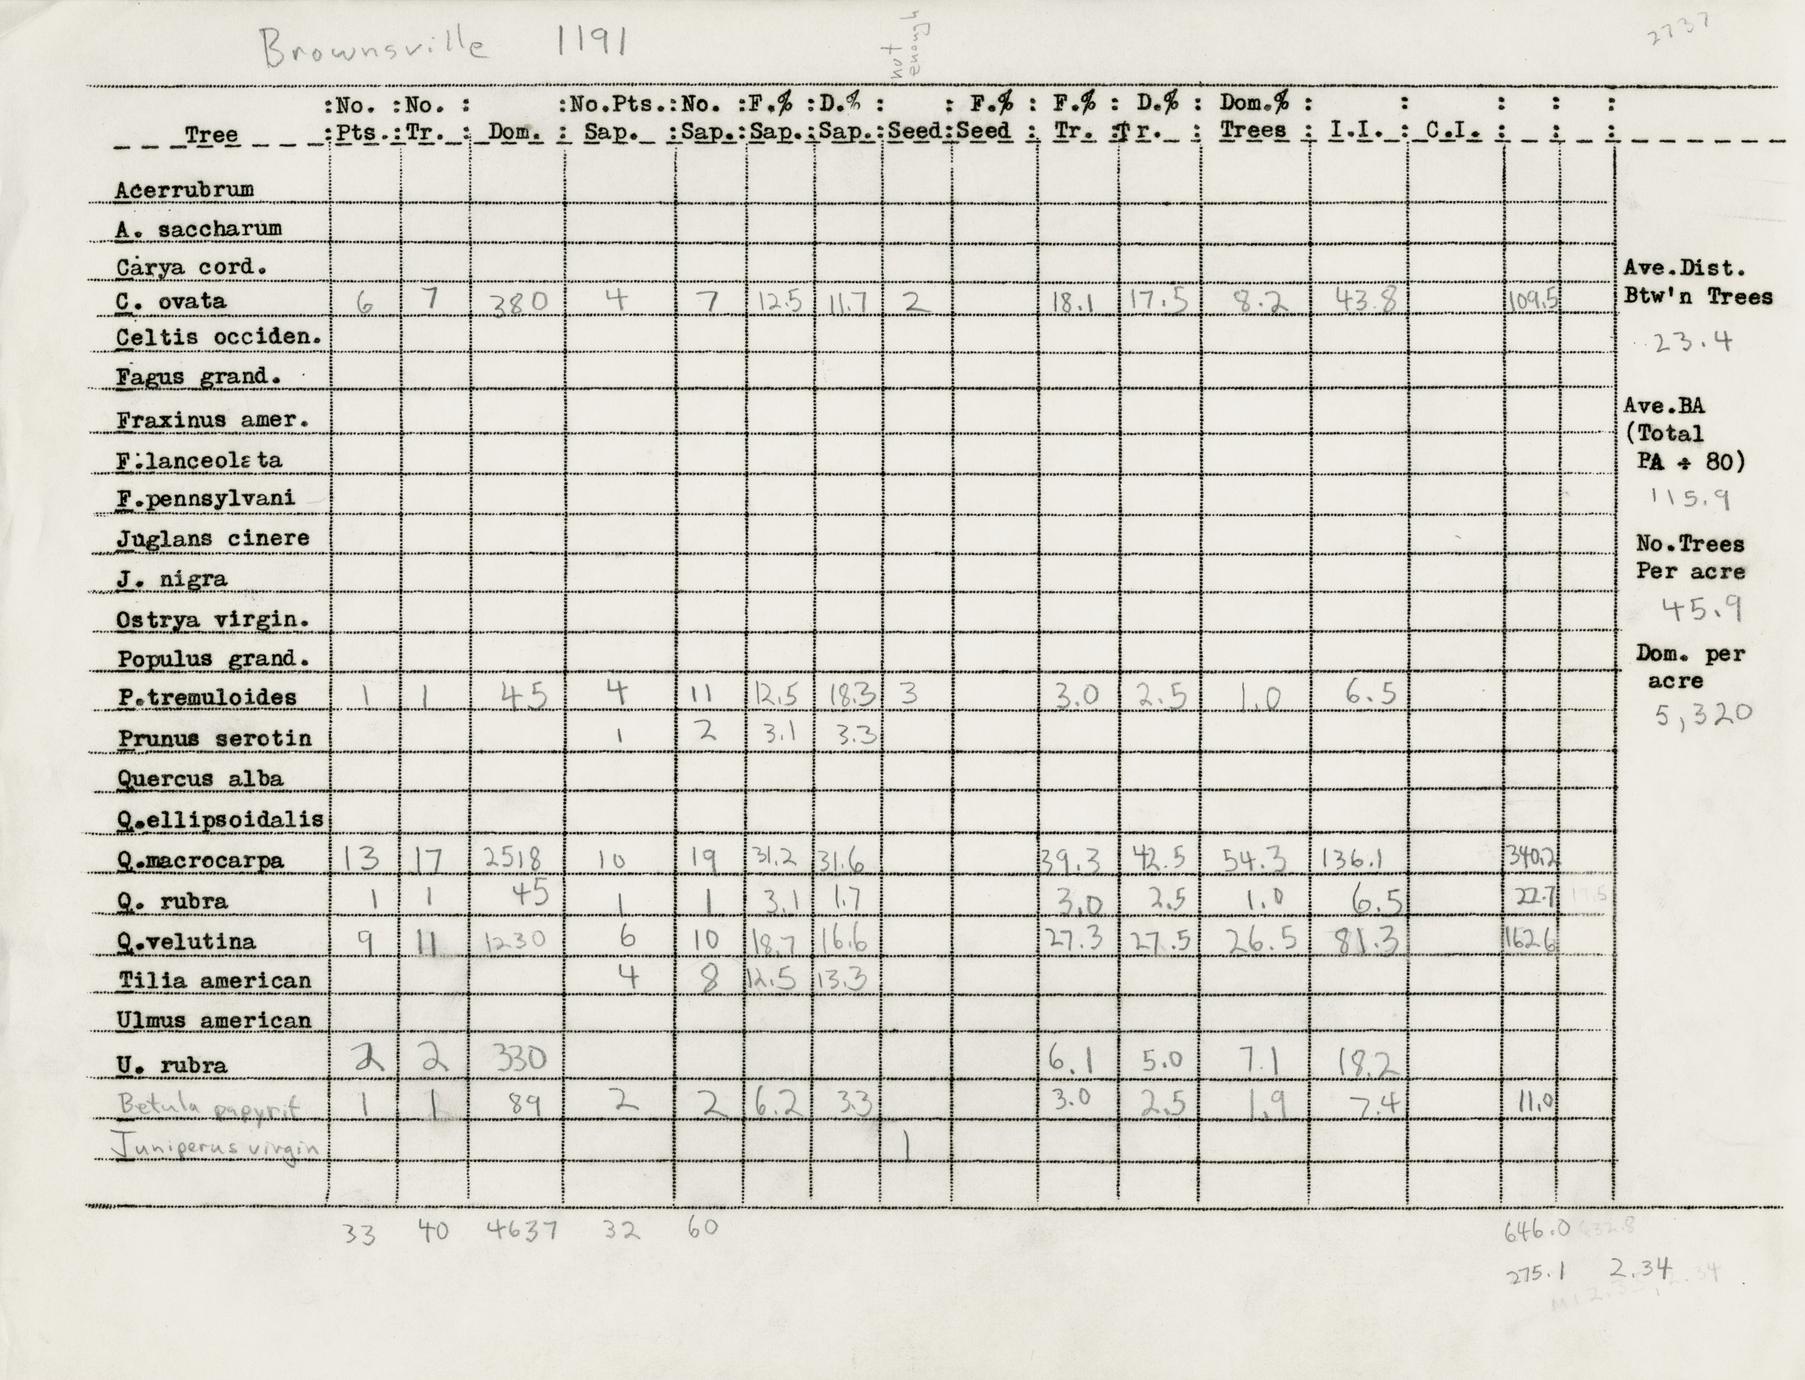 Brownsville 1191
not enough
2737
:No. :No. : :No.Pts.:No. :F.% :D.% : : F.% : F.% : D.% : Dom.% : : : : :
Tree :Pts.:Tr. : Dom. : Sap. :Sap.:Sap.:Sap.:Seed:Seed : Tr. :Tr. : Trees : I.I. : C.I. : : :
Acerrubrum
A. saccharum
Carya cord.
C. ovata 6 7 380 4 7 12.5 11.7 2 18.1 17.5 8.2 43.8 109.5
Celtis occiden.
Fagus grand.
Fraxinus amer.
F.lanceolata
F.pennsylvani
Juglans cinere
J. nigra
Ostrya virgin.
Populus grand.
P.tremuloides 1 1 45 4 11 12.5 18.3 3 3.0 2.5 1.0 6.5
Prunus serotin 1 2 3.1 3.3
Quercus alba
Q.ellipsoidalis
Q.macrocarpa 13 17 2518 10 19 31.2 31.6 39.3 42.5 54.3 136.1 340.2
Q. rubra 1 1 45 1 1 3.1 1.7 3.0 2.5 1.0 6.5 22.7 17.5
Q.velutina 9 11 1230 6 10 18.7 16.6 27.3 27.5 26.5 81.3 162.6
Tilia american 4 8 12.5 13.3
Ulmus american
U. rubra 2 2 330 6.1 5.0 7.1 18.2
Betula papyrif 1 1 89 2 2 6.2 3.3 3.0 2.5 1.9 7.4 11.0
Juniperus virgin 1
33 40 4637 32 60 646.0 632.8
275.1 2.34
Ave.Dist.
Btw'n Trees
23.4
Ave.BA
(Total
PA ÷ 80)
115.9
No.Trees
Per acre
45.9
Dom. per
acre
5,320